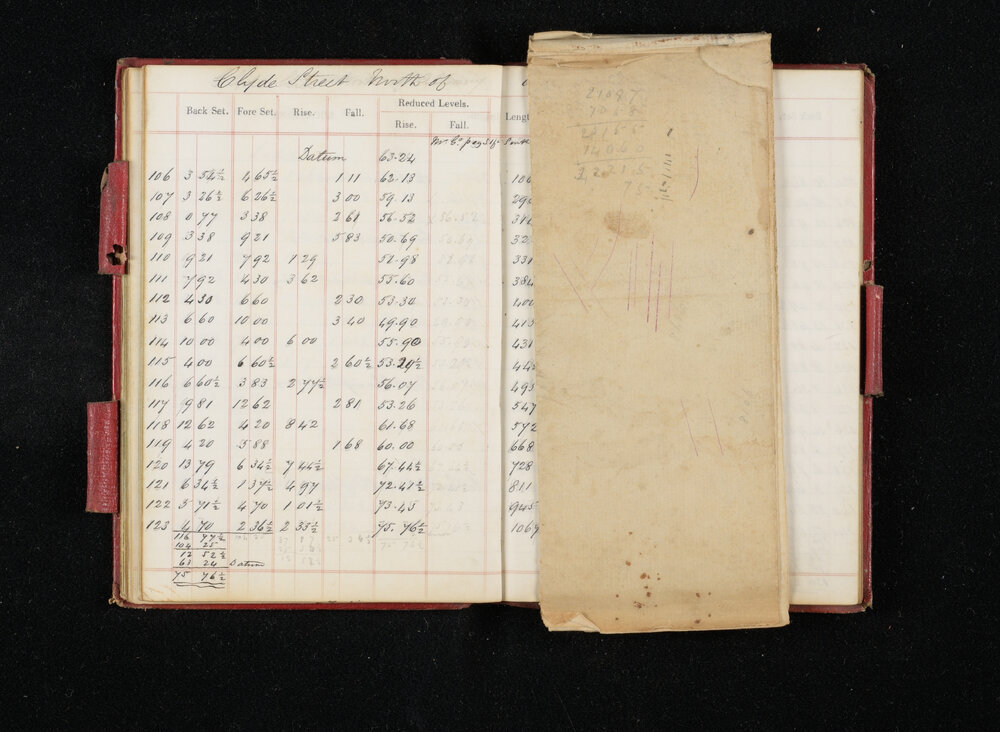 Clyde Street North of
Reduced Levels.
Back Set. Fore Set. Rise. Fall. Rise. Fall. Lengt
South
Datum 63.24
106 3 54½ 4 65½ 1 11 62.13 106
107 3 26½ 6 26½ 3 00 59.13 290
108 0 77 3 38 2 61 56.52 314
109 3 38 9 21 5 83 50.69 32
110 9 21 7 92 1 29 51.98 331
111 7 92 4 30 3 62 55.60 384
112 4 30 6 60 2 30 53.30 400
113 6 60 10 00 3 40 49.90 413
114 10 00 4 00 6 00 55.90 431
115 4 00 6 60½ 2 60½ 53.29½ 445
116 6 60½ 3 83 2 77½ 56.07 495
117 9 81 12 62 2 81 53.26 547
118 12 62 4 20 8 42 61.68 572
119 4 20 5 88 1 68 60.00 668
120 13 79 6 34½ 7 44½ 67.44½ 728
121 6 34½ 1 37½ 4 97 72.41½ 811
122 5 71½ 4 70 1 01½ 73.45 945
123 4 70 2 36½ 2 33½ 75.76½ 1067
116 77½
104 25
12 52½
63 24 Datum
75 76½
21087
7068
28155